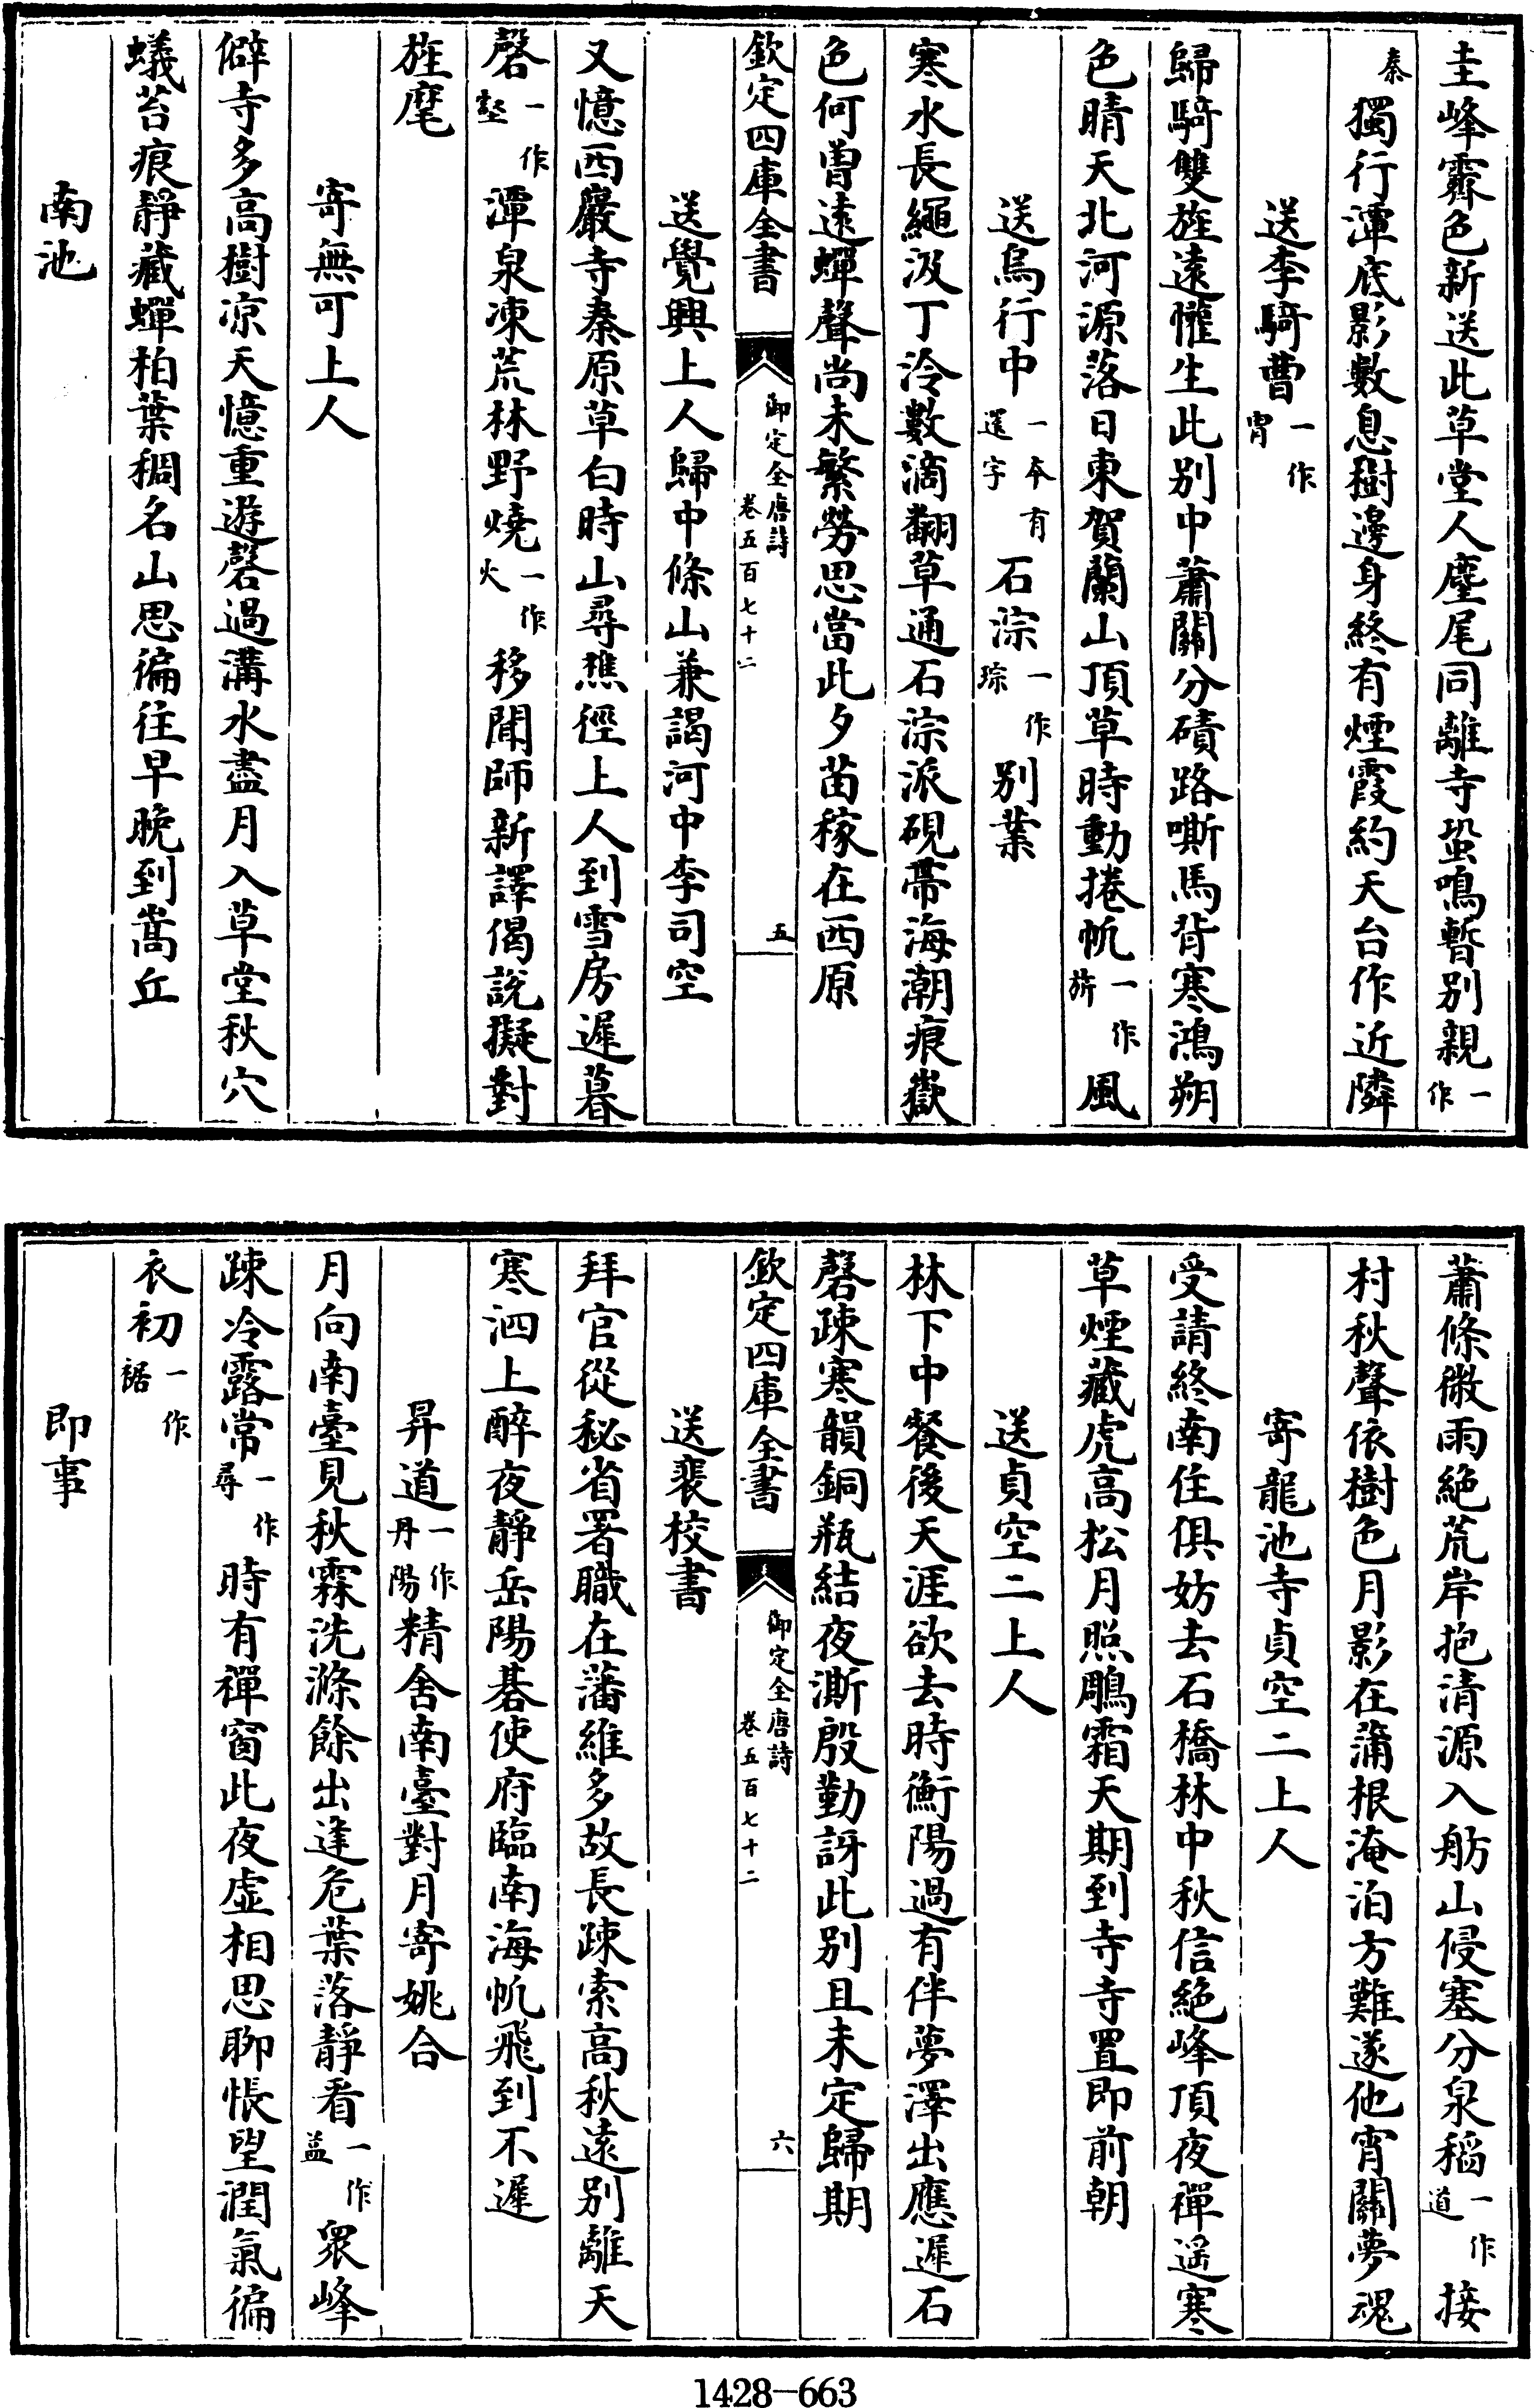 圭峰霽色新送此草堂人麈尾同離寺蛩鳴暫別親一作
秦獨行潭底影數息樹邊身終有煙霞約天台作近隣
送李騎曹一作冑
歸騎雙旌遠懽生此别中蕭關分磧路嘶馬背寒鴻朔
色晴天北河源落日東賀蘭山頂草時動捲帆一作旂風
送烏行中一本有還字石淙一作琮别業
寒水長繩汲丁泠數滴翻草通石淙派硯帶海潮痕嶽
色何曽遠蟬聲尚未繁勞思當此夕苗稼在西原
欽定四庫全書 御定全唐詩卷五百七十二 五
送覺興上人歸中條山兼謁河中李司空
又憶西巖寺秦原草白時山尋樵徑上人到雪房遲暮
磬一作壑潭泉凍荒林野燒一作火移聞師新譯偈說擬對
旌麾
寄無可上人
僻寺多高樹凉天憶重遊磬過溝水盡月入草堂秋穴
蟻苔痕靜藏蟬柏葉稠名山思徧往早晚到嵩丘
南池
蕭條微雨絕荒岸抱清源入舫山侵塞分泉稻一作道接
村秋聲依樹色月影在蒲根淹泊方難遂他宵關夢魂
寄龍池寺貞空二上人
受請終南住俱妨去石橋林中秋信絕峰頂夜禪遥寒
草煙藏虎高松月照鵰霜天期到寺寺置即前朝
送貞空二上人
林下中餐後天涯欲去時衡陽過有伴夢澤出應遲石
磬疎寒韻銅瓶結夜澌殷勤訝此别且未定歸期
欽定四庫全書 御定全唐詩卷五百七十二 六
送裴校書
拜官從秘省署職在藩維多故長疎索高秋遠别離天
寒泗上醉夜靜岳陽碁使府臨南海帆飛到不遲
昇道一作丹陽精舍南臺對月寄姚合
月向南臺見秋霖洗滌餘出逢危葉落靜看一作益衆峰
疎冷露常一作尋時有禪窗此夜虚相思聊悵望潤氣徧
衣初一作裾
即事
1428—663